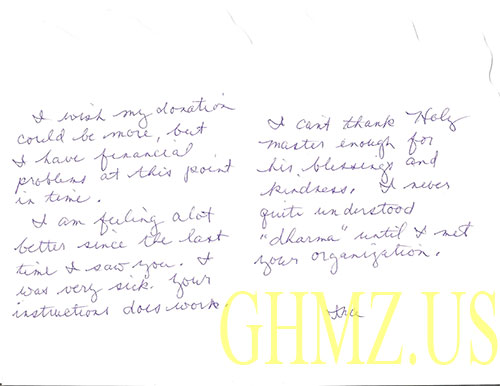 I wish my donation
could be more, but
I have financial
problems at this point
in time.
I am feeling alot
better since the last
time I saw you. I
was very sick. Your
instructions does work.
I can't thank Holy
master enough for
his blessings and
kindness. I never
quite understood
"dharma" until I met
your organization.
GHMZ.US